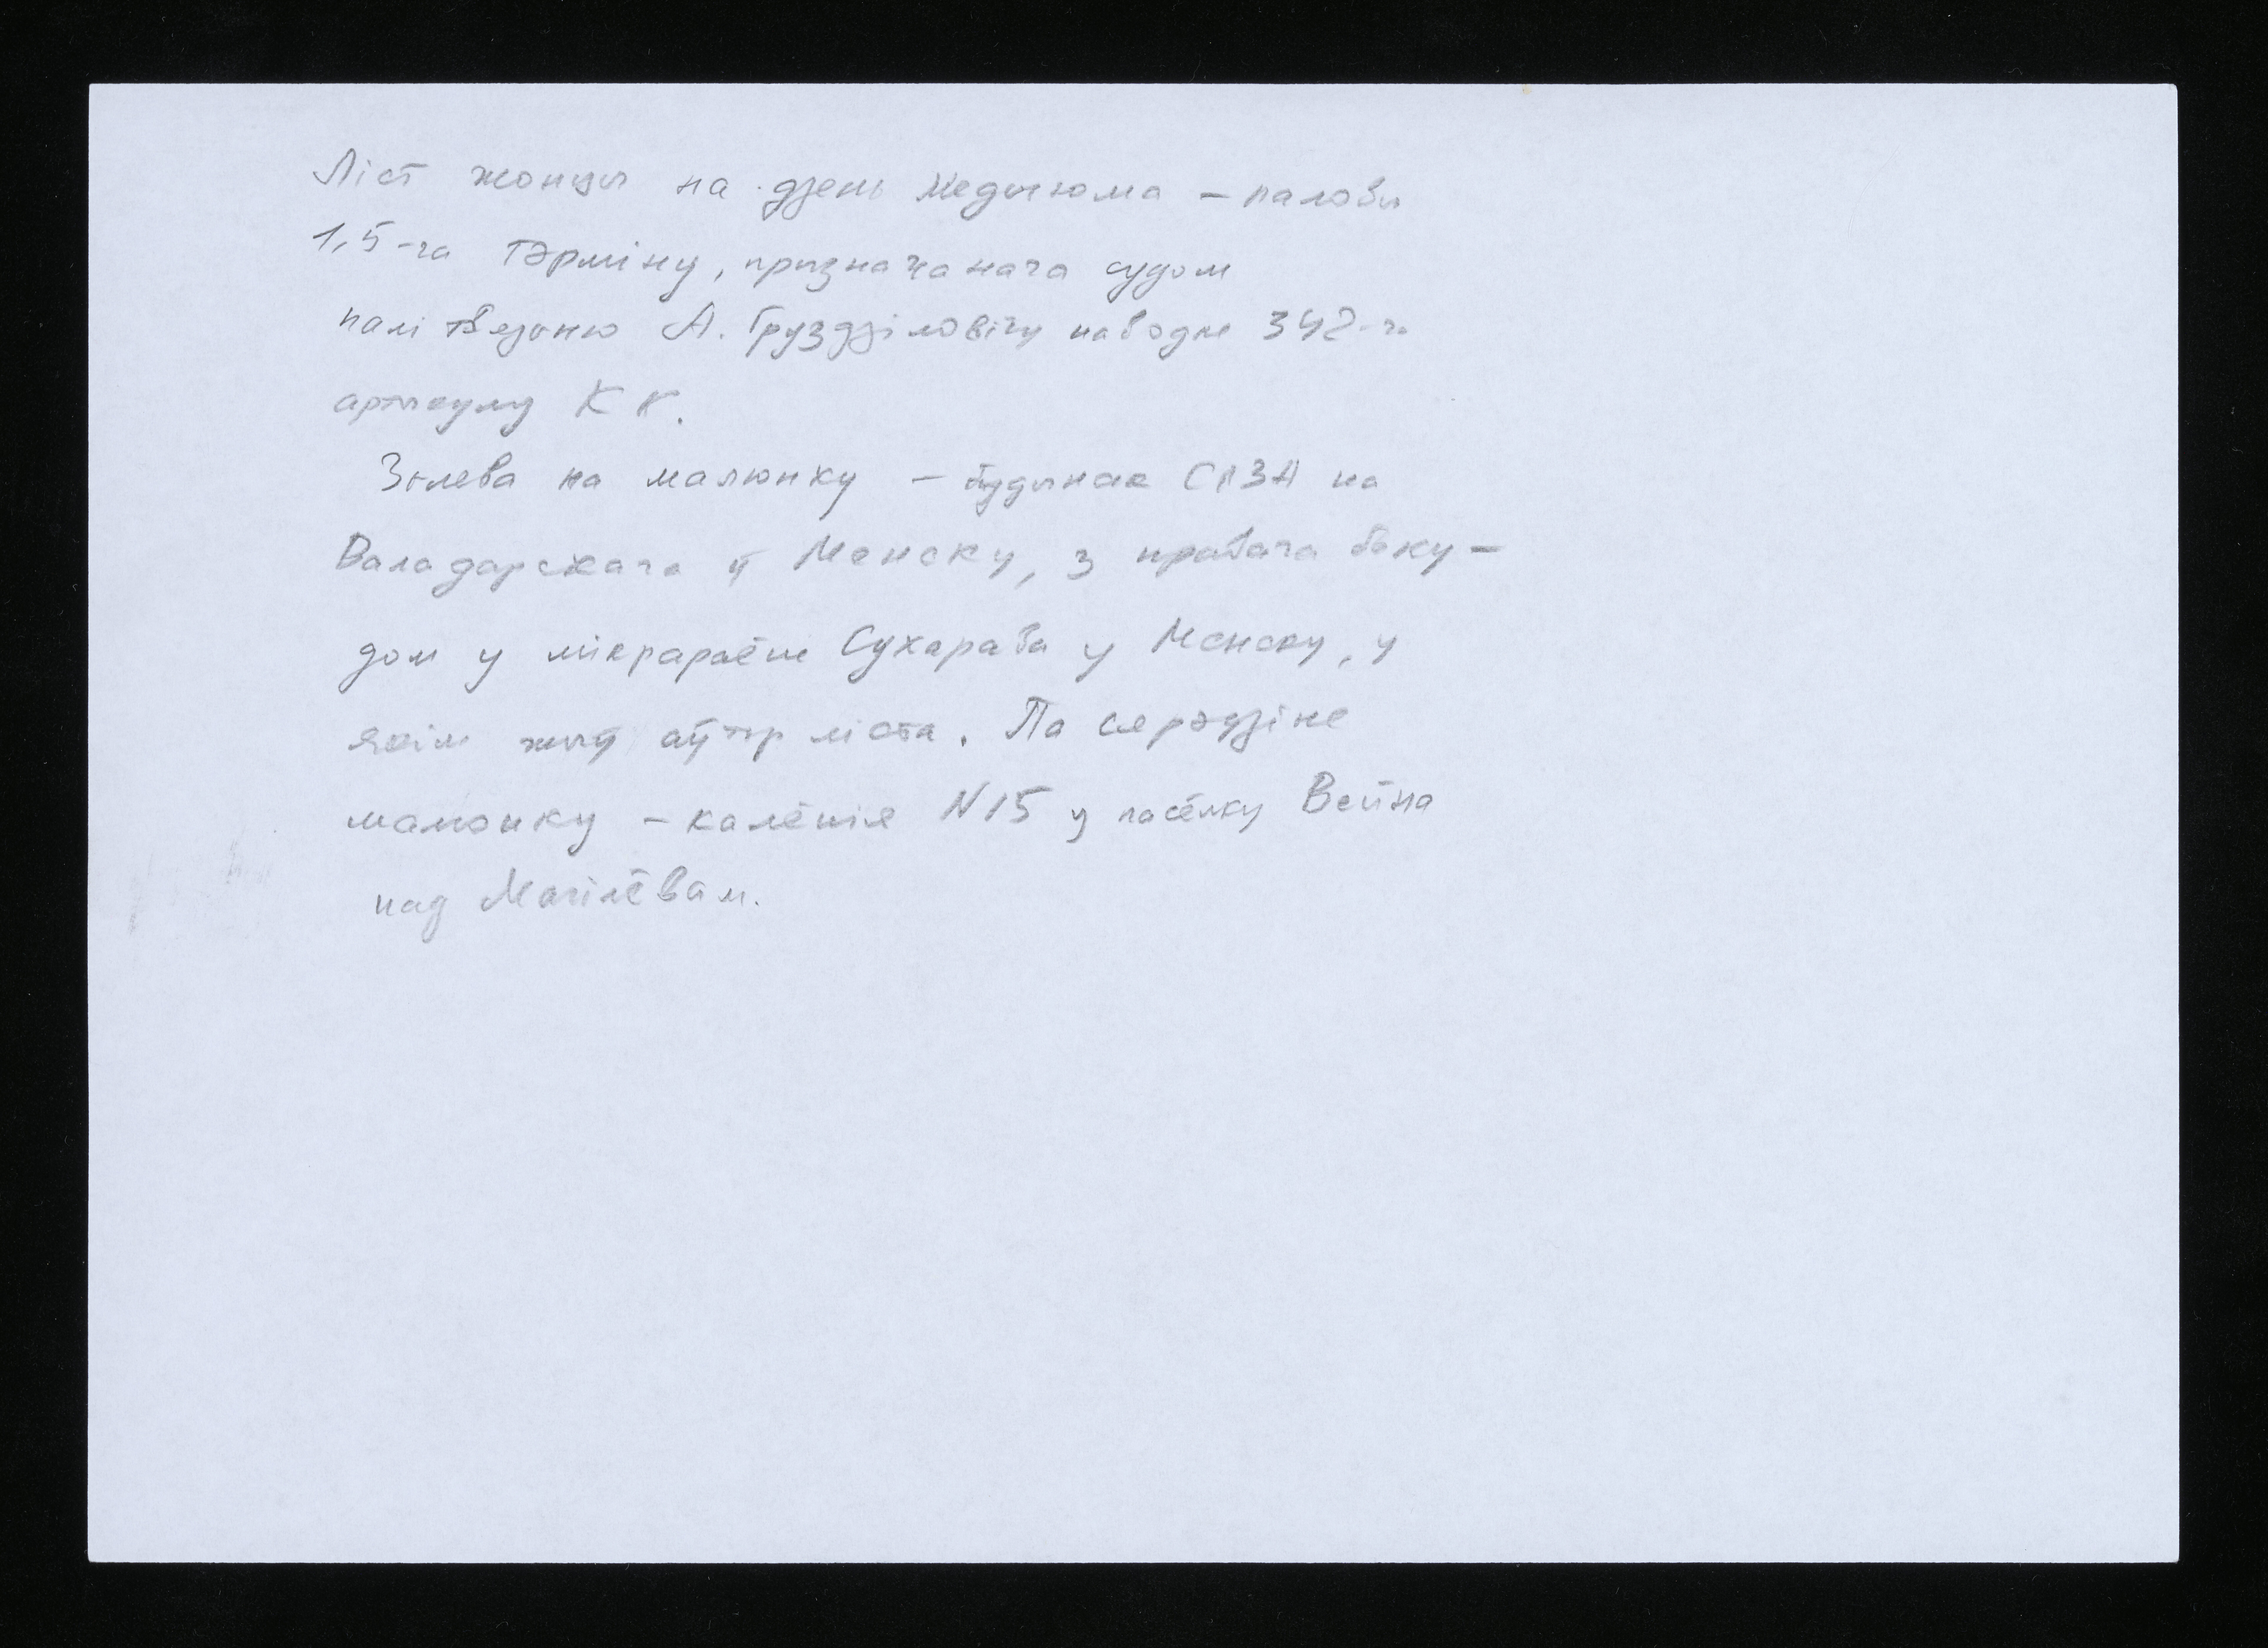 Ліст жонцы на дзень медыюма – паловы
1,5-га тэрміну, прызначанага судом
палітвязню А. Грузділовічу паводле 342-га
артыкулу КК.
Зьлева на малюнку – будынак СІЗА на
Валадарскага ў Менску, з правага боку –
дом у мікрараёне Сухарава у Менску, у
якім жыў аўтар ліста. Па сярэдзіне
малюнку – калёнія N15 у пасёлку Вейна
пад Магілёвам.